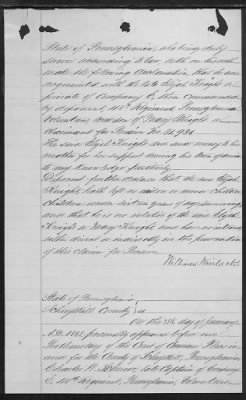 State of Pennsylvania, who being duly
sworn according to law, doth on his oath
make the following declaration, that he was
acquainted with the late Elijah Knight a
private of Company E, then Commanded
by deponent, Regiment Pennsylvania
Volunteers, and son of Mary Knight
for Pension No.
He said Elijah Knight said and money to his
mother for her support during his term of service
to my knowledge
Deponent further declares that the said Elijah
Knight, hath left no widow or minor child or
children under sixteen years of age surviving,
and that he is no relation of the said Elijah
Knight or Mary Knight, and has no interest
either direct or indirectly in the prosecution
of this claim for Pension.
William
State of Pennsylvania
Schuylkill County ss
On this day of January
A.D. 1865, personally appeared before me
Prothonotary of the Court of Common Pleas in
and for the County of Schuylkill, Pennsylvania
Charles late Captain of Company
E, Regiment, Pennsylvania Volunteers